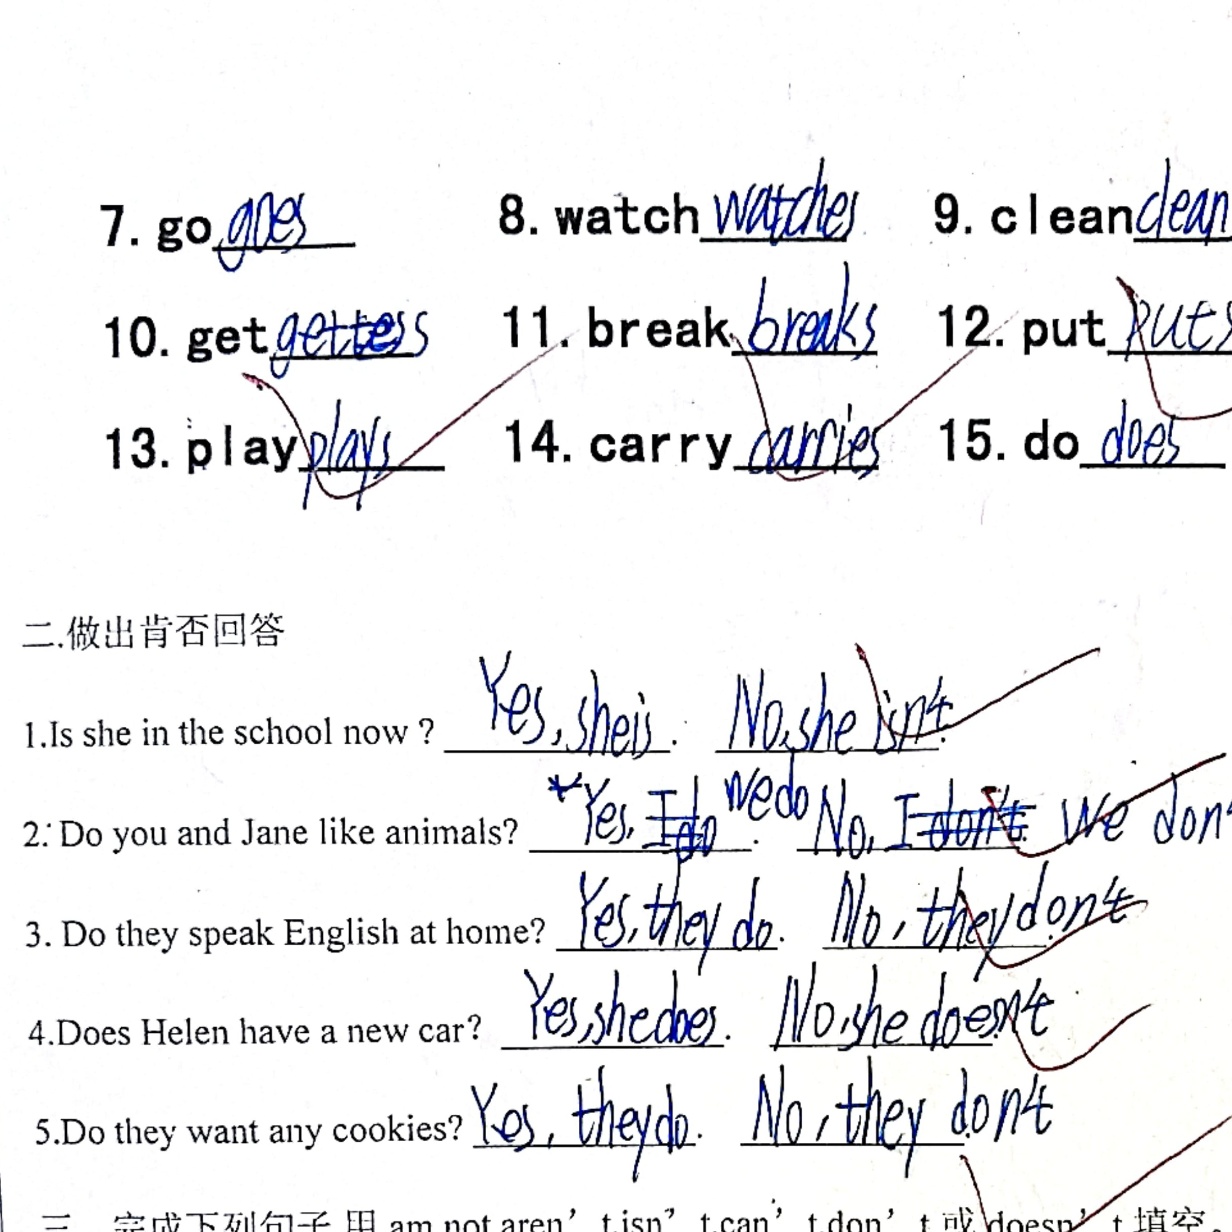 7. go goes 8. watch watches 9. clean clean
10. get 11. break breaks 12. put puts
13. play plays 14. carry carries 15. do does
二.做出肯否回答
1.Is she in the school now ? Yes, she is. No, she isn't.
2. Do you and Jane like animals? Yes, I do we do. No, I don't. we don't
3. Do they speak English at home? Yes, they do. No, they don't
4.Does Helen have a new car? Yes, she does. No, she doesn't
5.Do they want any cookies? Yes, they do. No, they don't
三、完成下列句子,用 am not aren't.isn't.can't.don't 或 doesn't 填空。